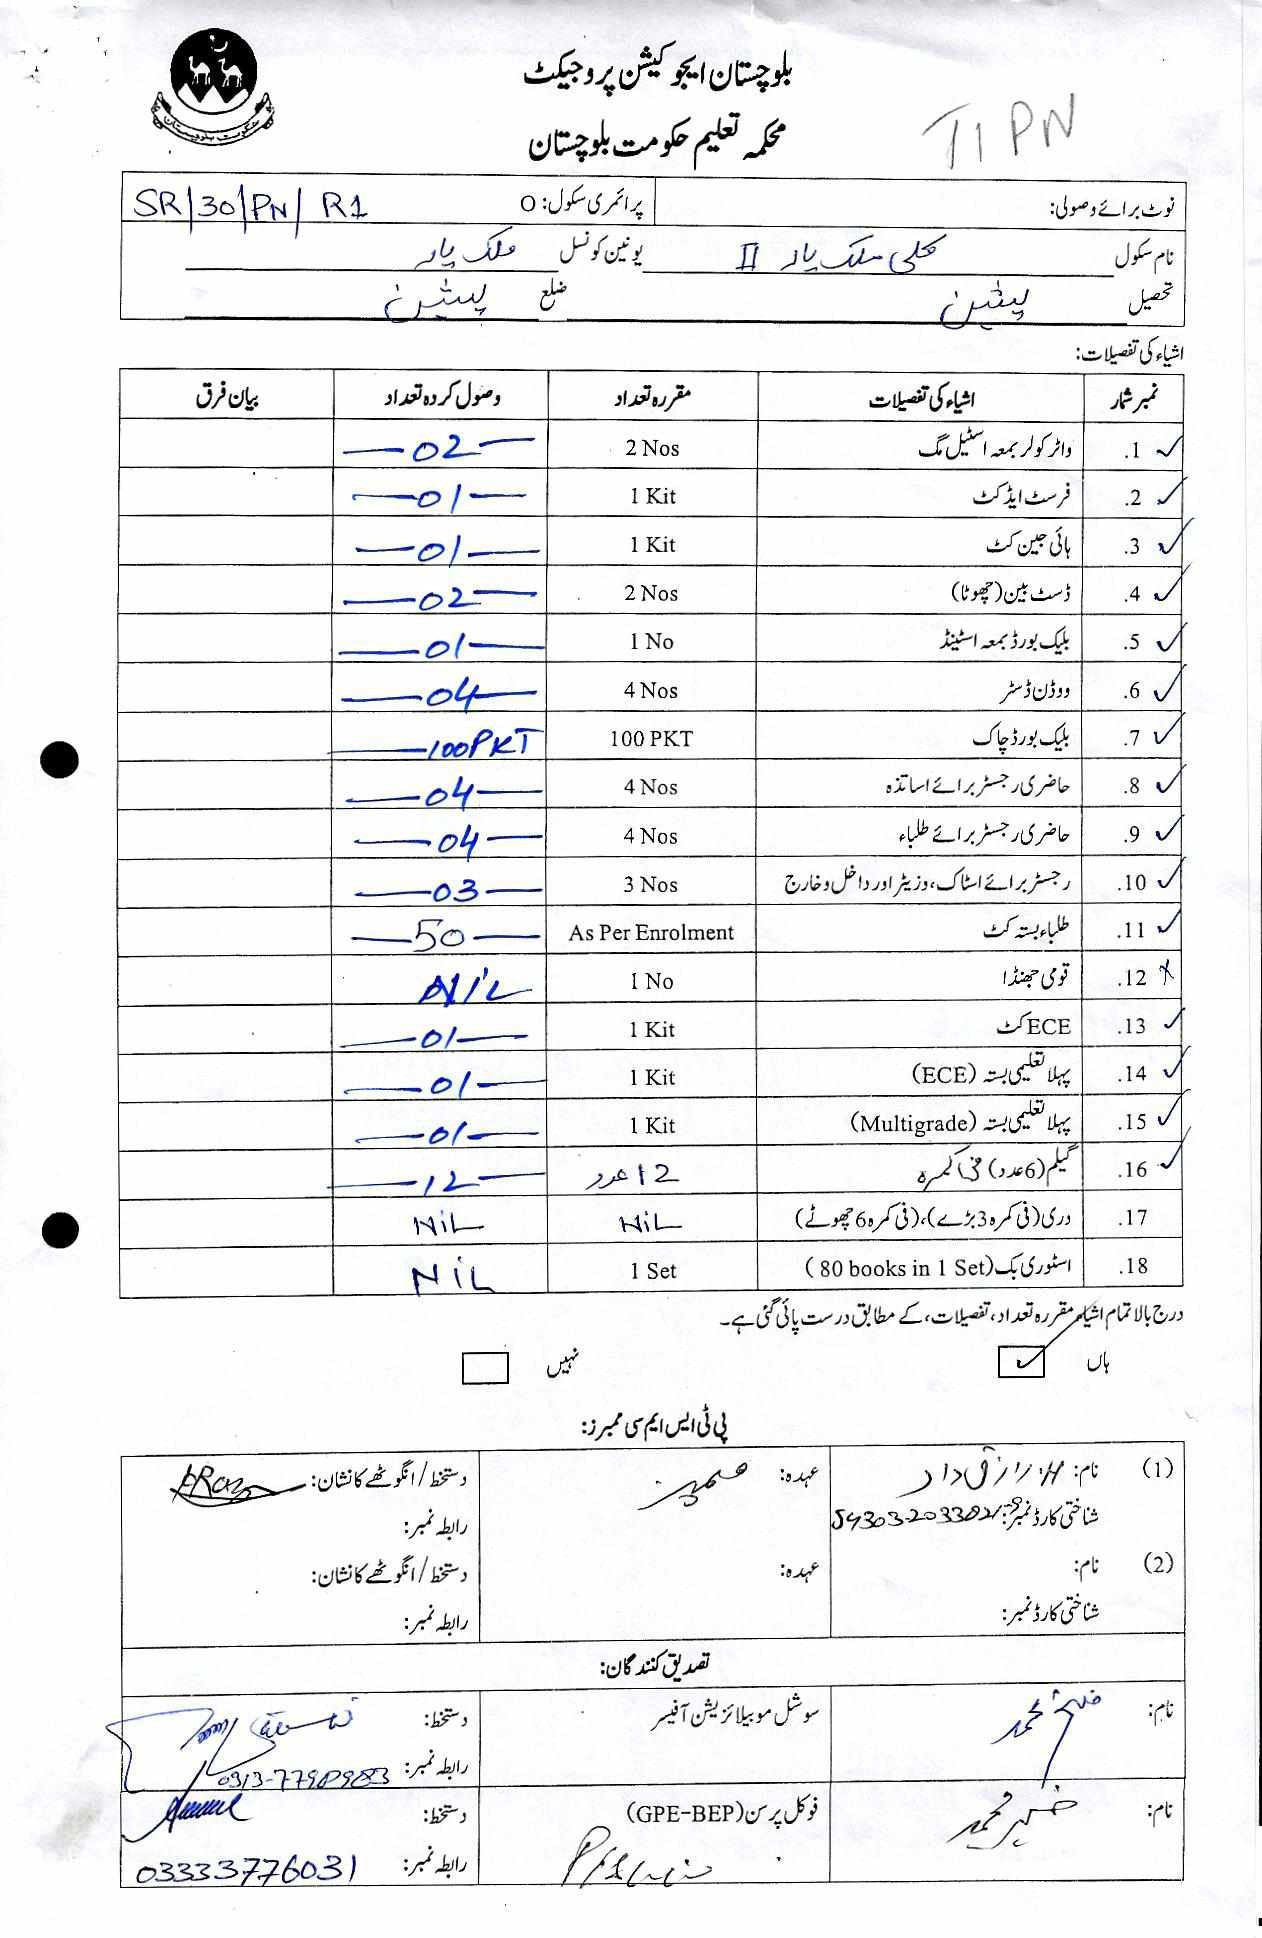 بلوچستان ایجوکیشن پروجیکٹ
محکمہ تعلیم حکومت بلوچستان
T1 PN
حکومت بلوچستان
نوٹ برائے وصولی: پرائمری سکول: O SR/30/PN/ R1
نام سکول کلی ملک یار II یونین کونسل ملک یار
تحصیل پشین ضلع پشین
اشیاء کی تفصیلات:
نمبر شمار اشیاء کی تفصیلات مقررہ تعداد وصول کردہ تعداد بیان فرق
✓ .1 واٹر کولر بمعہ اسٹیل مگ 2 Nos —02—
✓ .2 فرسٹ ایڈ کٹ 1 Kit —01—
✓ .3 ہائی جین کٹ 1 Kit —01—
✓ .4 ڈسٹ بین (چھوٹا) 2 Nos —02—
✓ .5 بلیک بورڈ بمعہ اسٹینڈ 1 No —01—
✓ .6 ووڈن ڈسٹر 4 Nos —04—
✓ .7 بلیک بورڈ چاک 100 PKT —100PKT
✓ .8 حاضری رجسٹر برائے اساتذہ 4 Nos —04—
✓ .9 حاضری رجسٹر برائے طلباء 4 Nos —04—
✓ .10 رجسٹر برائے اسٹاک، وزیٹر اور داخل و خارج 3 Nos —03—
✓ .11 طلباء بستہ کٹ As Per Enrolment —50—
x .12 قومی جھنڈا 1 No NiL
✓ .13 ECE کٹ 1 Kit —01—
✓ .14 پہلا تعلیمی بستہ (ECE) 1 Kit —01—
✓ .15 پہلا تعلیمی بستہ (Multigrade) 1 Kit —01—
✓ .16 گیلم (6 عدد) فی کمرہ 12 عدد —12—
.17 دری (فی کمرہ 3 بڑے)، (فی کمرہ 6 چھوٹے) NiL NiL
.18 اسٹوری بک (80 books in 1 Set) 1 Set NiL
درج بالا تمام اشیاء مقررہ تعداد، تفصیلات، کے مطابق درست پائی گئی ہے۔
ہاں ✓ نہیں
پی ٹی ایس ایم سی ممبرز:
(1) نام: عہدہ: ممبر دستخط / انگوٹھے کا نشان:
شناختی کارڈ نمبر: رابطہ نمبر:
(2) نام: عہدہ: دستخط / انگوٹھے کا نشان:
شناختی کارڈ نمبر: رابطہ نمبر:
تصدیق کنندگان:
نام: محمد سوشل موبیلائزیشن آفیسر دستخط:
رابطہ نمبر:
نام: محمد فوکل پرسن (GPE-BEP) دستخط:
رابطہ نمبر: 03333776031